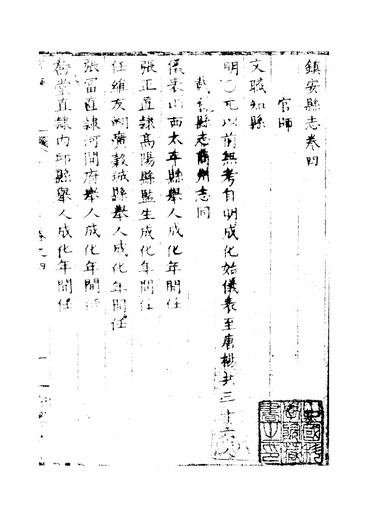 鎮安縣志卷四
官師
文職知縣
明〇元以前無考自明成化始儀表至唐樾共三十六人
縣志商州志同
儀表山西太平縣舉人成化年間任
張正直隷高陽縣監生成化年間任
任維友湖廣穀城縣舉人成化年間任
張富直隷河間府舉人成化年間任
喬堂直隷内邱縣舉人成化年間任